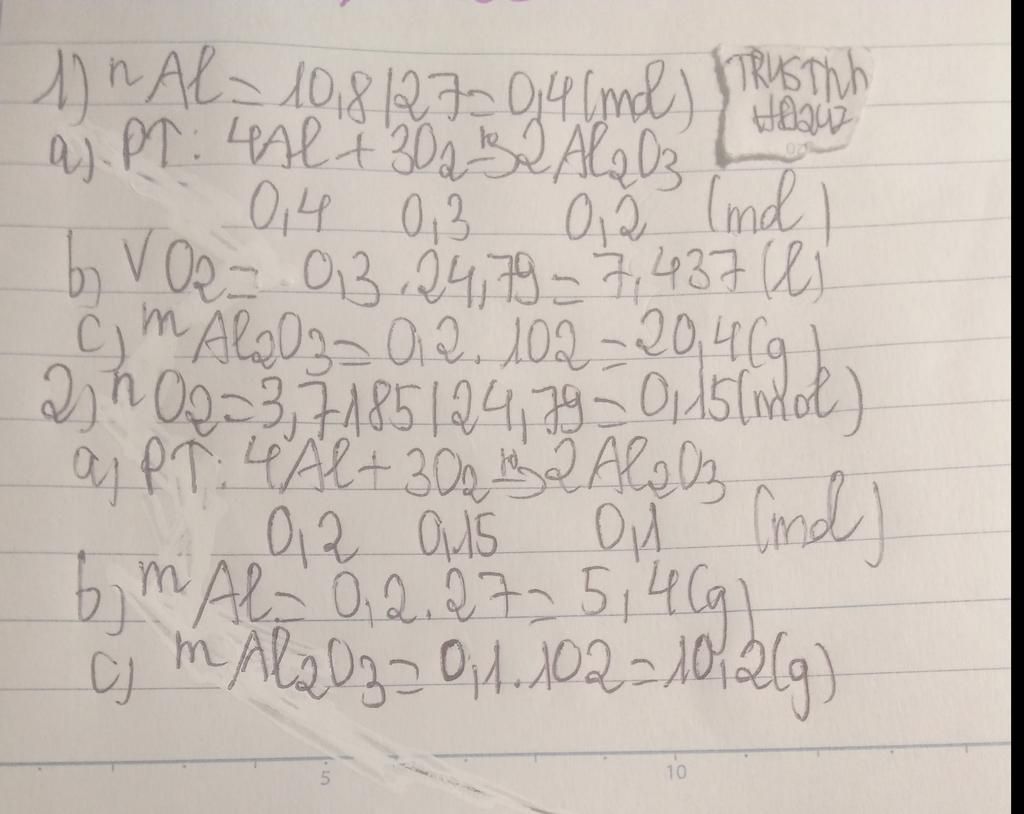 1) nAl = 10,8/27 = 0,4(mol)
TRUSThh
a) PT: 4Al + 3O2 -> 2Al2O3
0,4 0,3 0,2 (mol)
b) VO2 = 0,3.24,79 = 7,437(l)
c) mAl2O3 = 0,2.102 = 20,4(g)
2) nO2 = 3,7185/24,79 = 0,15(mol)
a) PT: 4Al + 3O2 -> 2Al2O3
0,2 0,15 0,1 (mol)
b) mAl = 0,2.27 = 5,4(g)
c) mAl2O3 = 0,1.102 = 10,2(g)
5 10